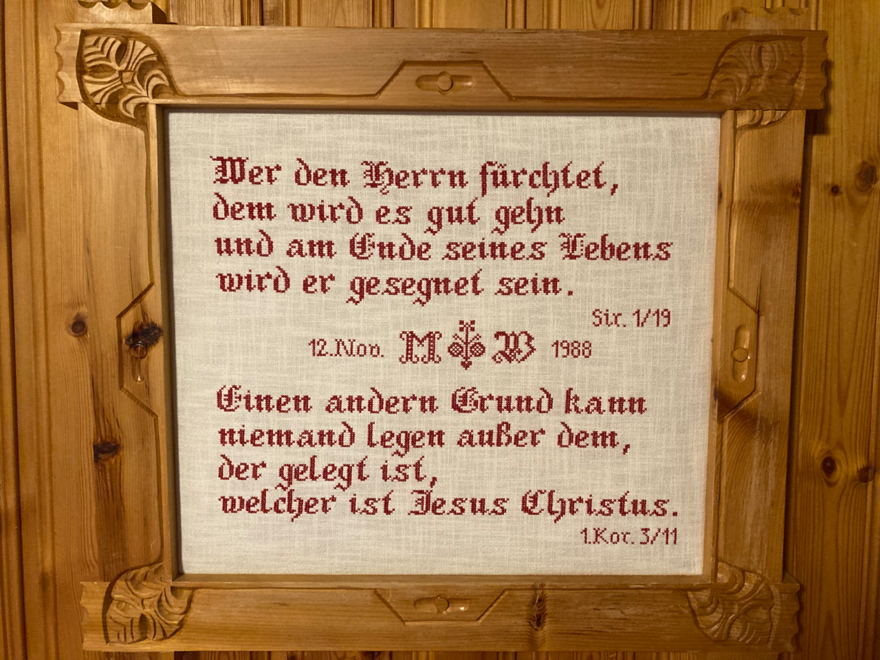 Wer den Herrn fürchtet,
dem wird es gut gehn
und am Ende seines Lebens
wird er gesegnet sein.
Sir. 1/19
12.Nov. M W 1988
Einen andern Grund kann
niemand legen außer dem,
der gelegt ist,
welcher ist Jesus Christus.
1.Kor. 3/11